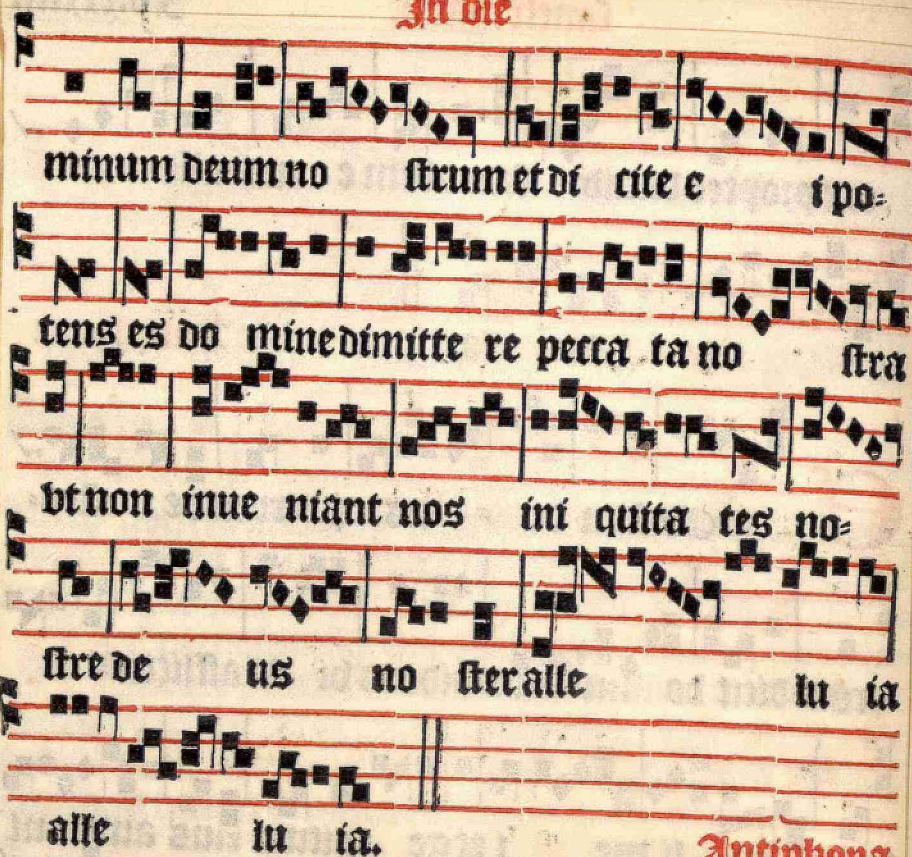 In die
minum deum no strum et di cite e i po=
tens es do mine dimitte re pecca ta no stra
vt non inue niant nos ini quita tes no=
stre de us no ster alle lu ia
alle lu ia.
Antiphona